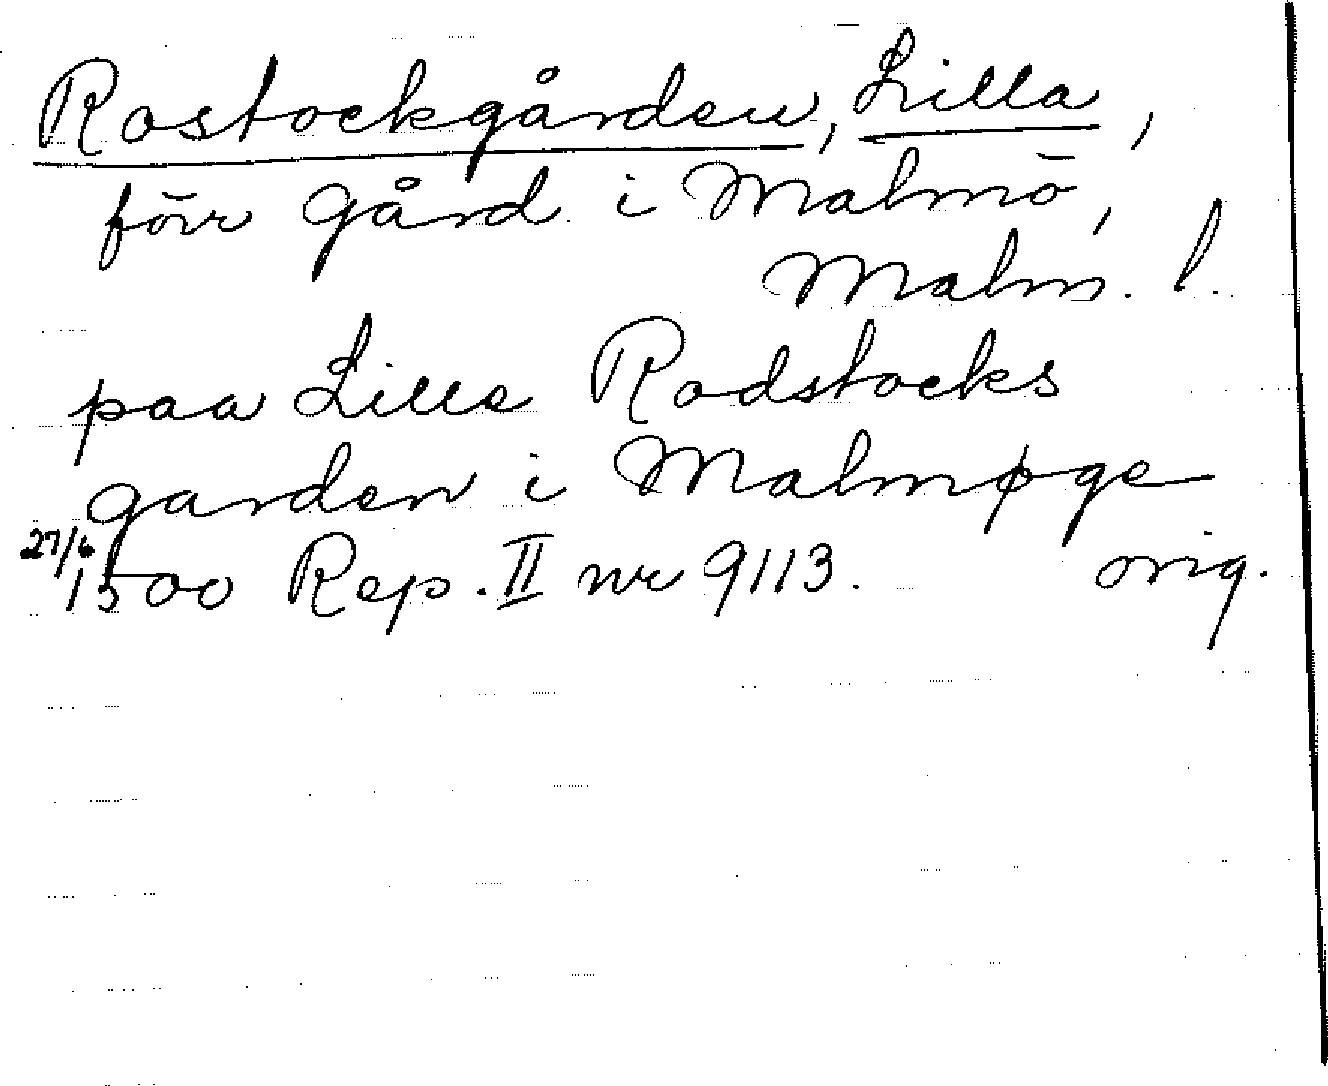 Rostockgården, Lilla,
förr gård i Malmö,
Malm. l.
paa Lille Rodstocks
garden i Malmøge
27/6 1500 Rep. II nr 9113. orig.